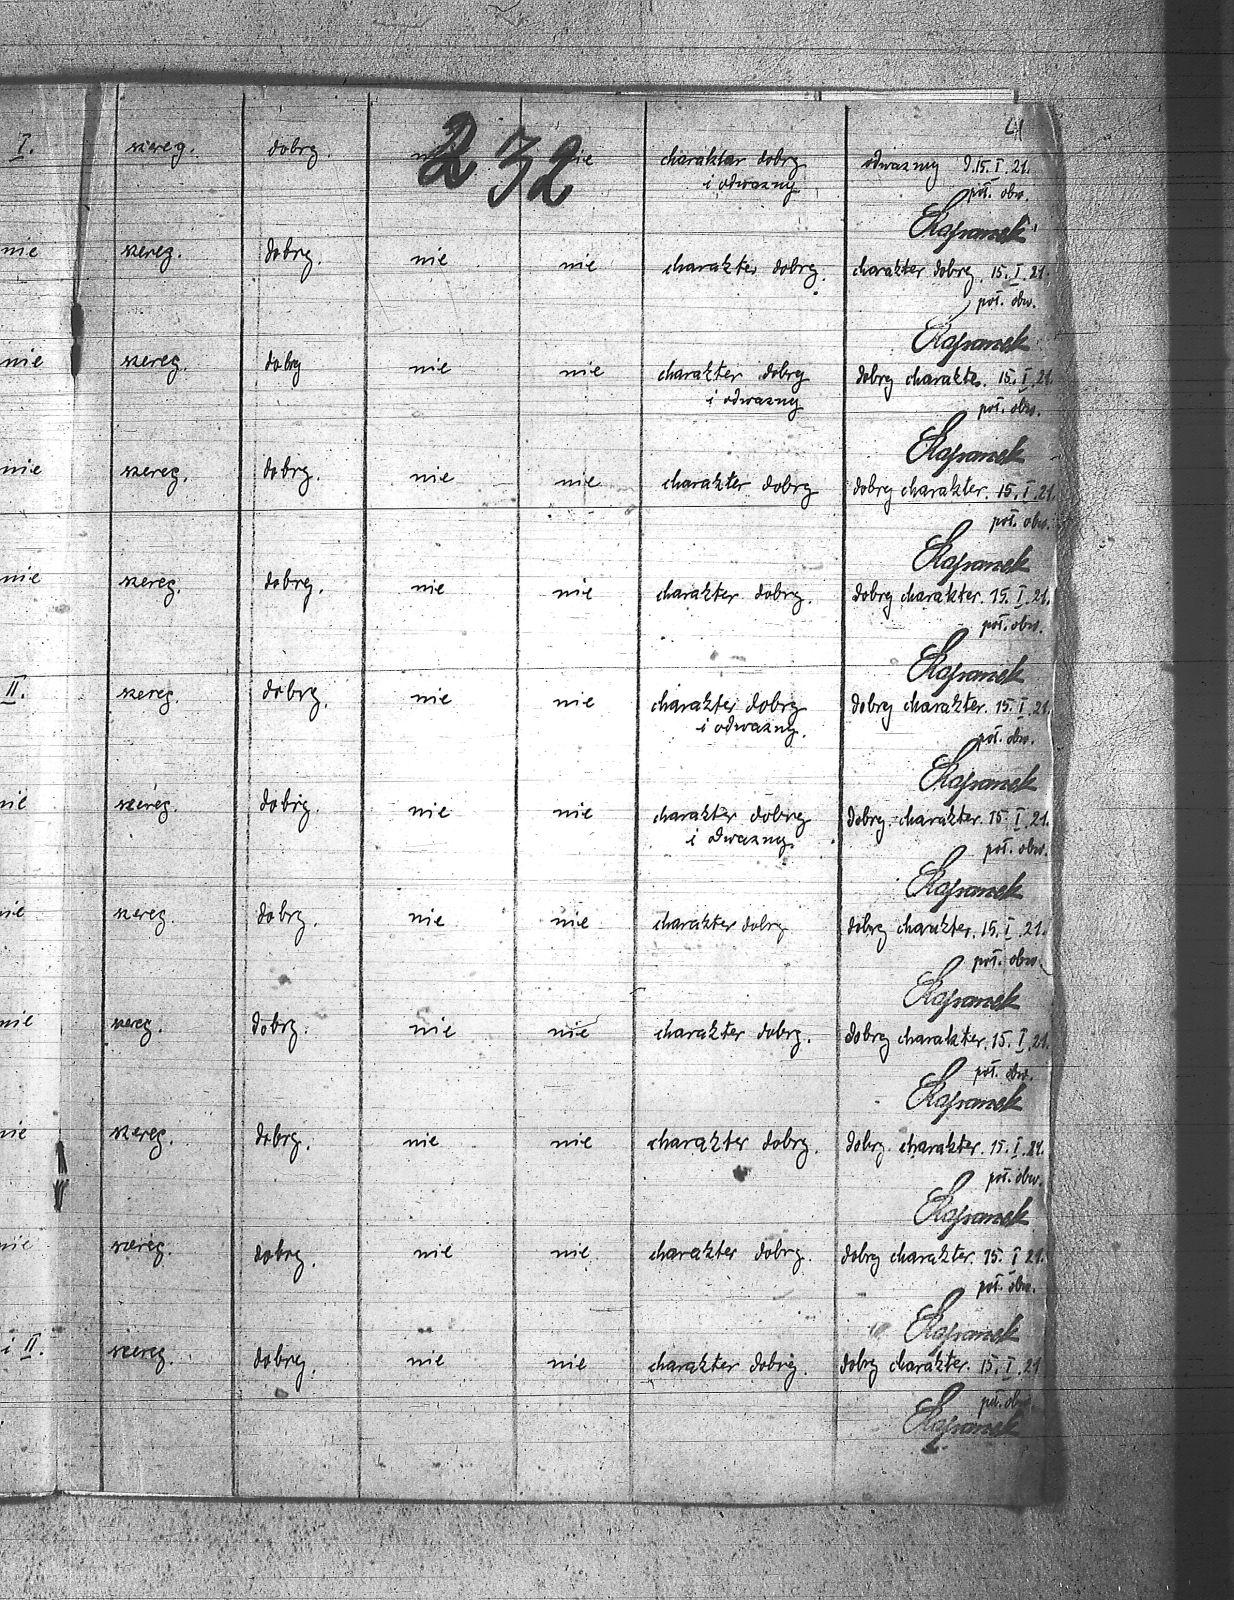 232
I. szereg. dobry. charakter dobry odważny d.15.I.21.
i odważny poł. obw.
nie szereg. dobry. nie nie charakter dobry. charakter dobry. 15.I.21.
poł. obw.
nie szereg. dobry nie nie charakter dobry dobry charakte. 15.I.21.
i odważny poł. obw.
nie szereg. dobry. nie nie charakter dobry dobry charakter. 15.I.21.
poł. obw.
nie szereg. dobry. nie nie charakter dobry. dobry charakter. 15.I.21.
poł. obw.
II. szereg. dobry. nie nie charakter dobry dobry charakter. 15.I.21.
i odważny. poł. obw.
nie szereg. dobry. nie nie charakter dobry dobry charakter. 15.I.21.
i dważny. poł. obw.
nie szereg. dobry. nie nie charakter dobry dobry charakter. 15.I.21.
poł. obw.
nie szereg. dobry. nie nie charakter dobry. dobry charakter. 15.I.21.
poł. obw.
nie szereg. dobry. nie nie charakter dobry. dobry charakter. 15.I.21.
poł. obw.
nie szereg. dobry. nie nie charakter dobry. dobry charakter. 15.I.21.
poł. obw.
i II. szereg. dobry. nie nie charakter dobry. dobry charakter. 15.I.21
poł. obw.